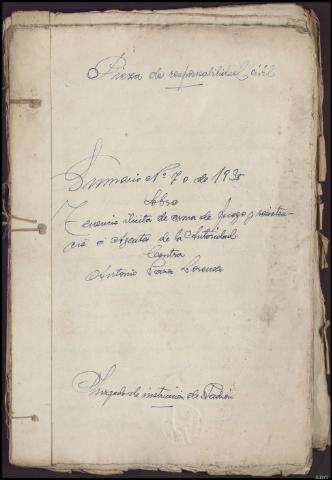 Pieza de responsabilidad civil
Sumario Nº 70 de 1930
Sobre
Tenencia ilicita de arma de fuego y resisten-
cia a Agentes de la Autoridad
Contra
Antonio Lorenzo
Juzgado de instrucion de Padrón